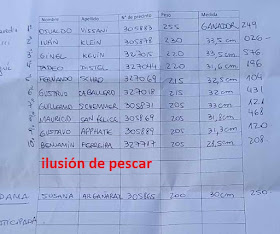 Nombre Apellido N° de precinto Peso Medida
1° OSVALDO VISSANI 305883 255 GANADOR 249
IVÁN KLEIN 305898 230 33,5cm 026
DINEL KEVIN 327015 220 33,5cm 546
TADEO 327044 220 31,6cm 196
FERNANDO 327069 215 32,5cm 104
GUSTAVO CABALLERO 327018 215 32cm 431
GUILLERMO SCHEMMER 305831 205 33cm
MAURICIO SAN FELICE 305869 205 31,8cm 468
GUSTAVO APPHATIE 305889 205 31,3cm 120
BENJAMIN FERREIRA 327717 205 28,50cm 208
ilusión de pescar
DAMA SUSANA ARGAÑARAL 305865 200 30cm 250